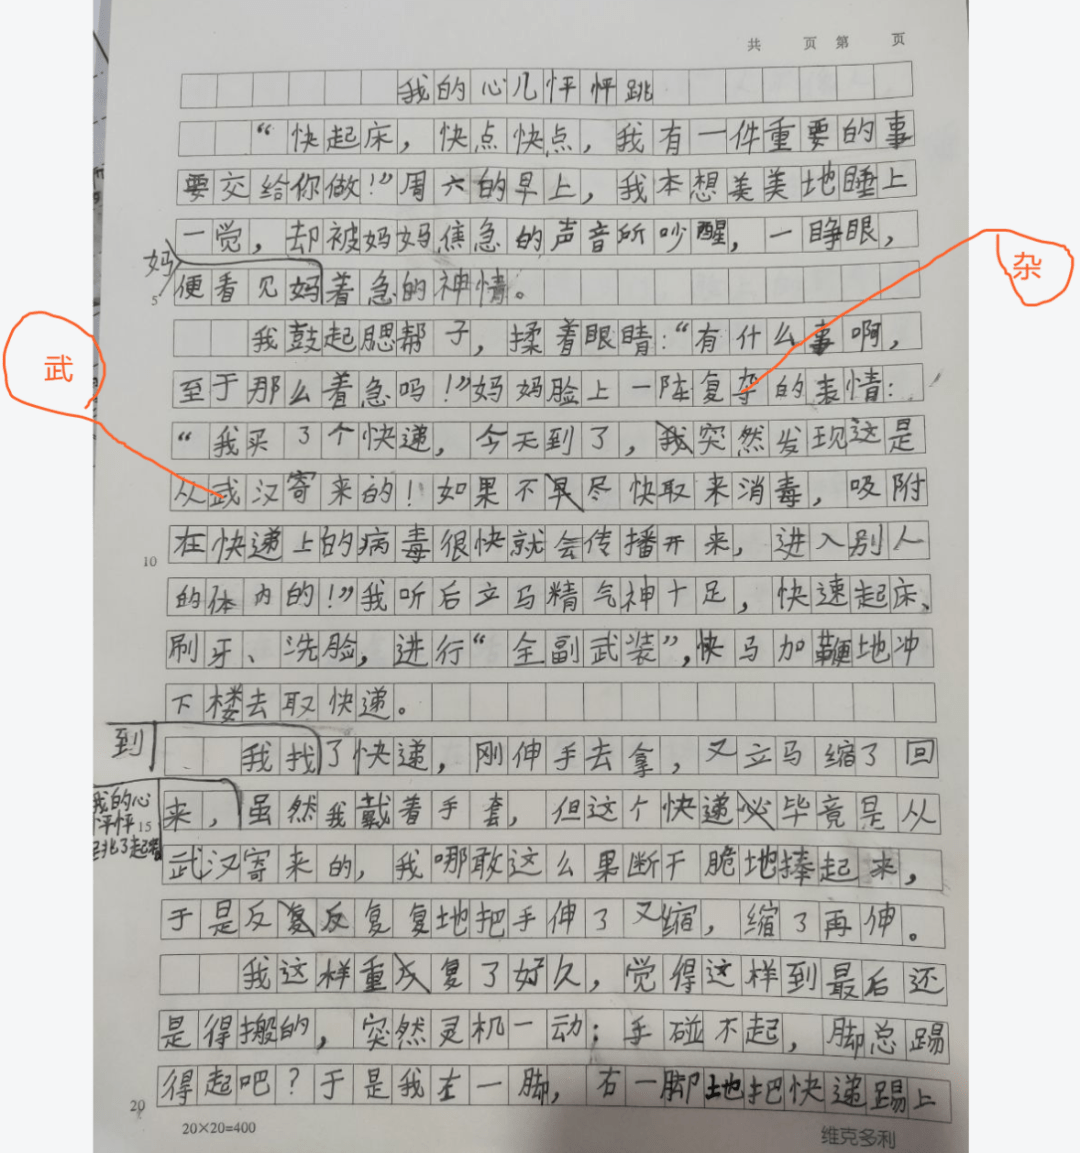 共 页 第 页
我的心儿怦怦跳
“快起床，快点快点，我有一件重要的事
要交给你做！”周六的早上，我本想美美地睡上
一觉，却被妈妈焦急的声音所吵醒，一睁眼，
妈
便看见妈着急的神情。
5
杂
我鼓起腮帮子，揉着眼睛：“有什么事啊，
武
至于那么着急吗！”妈妈脸上一阵复杂的表情：
“我买了个快递，今天到了，我突然发现这是
从武汉寄来的！如果不早尽快取来消毒，吸附
在快递上的病毒很快就会传播开来，进入别人
10
的体内的！”我听后立马精气神十足，快速起床、
刷牙、洗脸，进行“全副武装”，快马加鞭地冲
下楼去取快递。
到
我找了快递，刚伸手去拿，又立马缩了回
我的心
怦怦
15
是跳了起来
来，虽然我戴着手套，但这个快递必毕竟是从
武汉寄来的，我哪敢这么果断干脆地捧起来，
于是反复反复复地把手伸了又缩，缩了再伸。
我这样重反复了好久，觉得这样到最后还
是得搬的，突然灵机一动：手碰不起，脚总踢
得起吧？于是我左一脚，右一脚地把快递踢上
20
20×20=400
维克多利